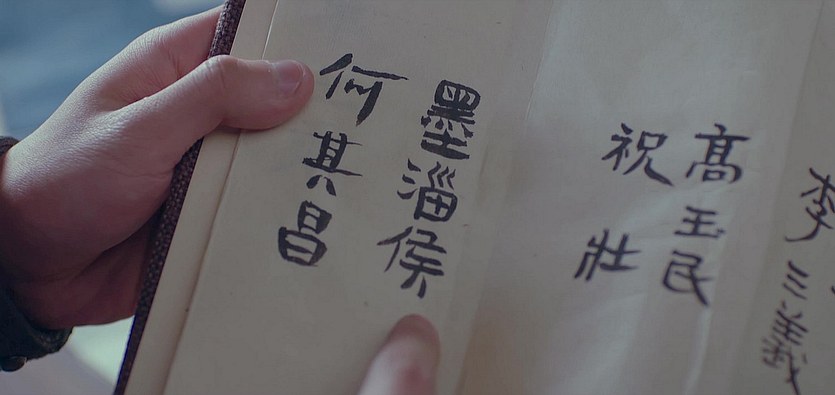 李三義
高玉民
祝壯
墨淄侯
何其昌